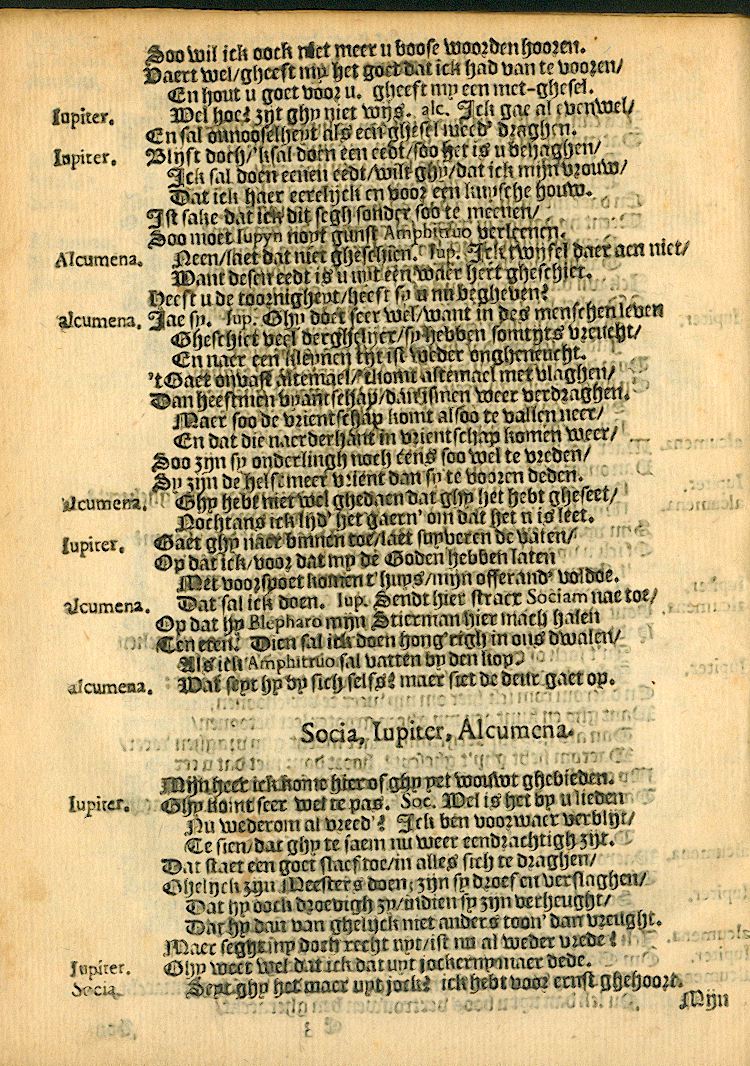 Soo wil ick oock niet meer u boose woorden hooren.
Vaert wel/gheeft my het goet dat ick had van te vooren/
En hout u goet voor u. gheeft my een met-ghesel.
Iupiter. Wel hoe? zyt ghy niet wijs. alc. Ick gae al evenwel/
En sal onnooselheyt als een ghesel meed' draghen.
Iupiter. Blyft doch/'k sal doen een eedt/soo het is u behaghen/
Ick sal doen eenen eedt/wilt ghy/dat ick mijn vrouw/
Dat ick haer eerelijck en voor een kuysche houw.
Ist sake dat ick dit segh sonder soo te meenen/
Soo moet Iupyn noyt gunst Amphitruo verleenen.
Alcumena. Neen/laet dat niet gheschien. Iup. Ick twyfel daer aen niet/
Want desen eedt is u uyt een waer hert gheschiet.
Heeft u de toornigheyt/heeft sy u nu begheven?
alcumena. Jae sy. Iup. Ghy doet seer wel/want in des menschen leven
Gheschiet veel derghelijcx/sy hebben somtyts vreucht/
En naer een kleynen tyt ist weder ongheneucht.
't Gaet onvast altemael/'tkomt altemael met vlaghen/
Dan heeftmen vyantschap/dan ismen weer verdraghen.
Maer soo de vrientschap komt alsoo te vallen neer/
En dat die naerderhant in vrientschap komen weer/
Soo zyn sy onderlingh noch eens soo wel te vreden/
Sy zyn de helft meer vrient dan sy te vooren deden.
alcumena. Ghy hebt niet wel ghedaen dat ghy het hebt gheseet/
Nochtans ick lijd' het gaern' om dat het u is leet.
Iupiter. Gaet ghy naer binnen toe/laet suyveren de vaten/
Op dat ick/voor dat my de Goden hebben laten
Met voorspoet komen t'huys/mijn offerand' voldoe.
alcumena. Dat sal ick doen. Iup. Sendt hier stracx Sociam nae toe/
Op dat hy Blepharo mijn Stierman hier mach halen
Ten eten. Dien sal ick doen hong'righ in ons dwalen/
Als ick Amphitruo sal vatten by den kop.
alcumena. Wat seyt hy by sich selfs? maer siet de deur gaet op.
Socia, Iupiter, Alcumena.
Mijn heer ick kome hier of ghy yet wouwt ghebieden.
Iupiter. Ghy komt seer wel te pas. Soc. Wel is het by u lieden
Nu wederom al vreed'? Ick ben voorwaer verblijt/
Te sien/dat ghy te saem nu weer eendrachtigh zijt.
Dat staet een goet slaef toe/in alles sich te draghen/
Ghelijck zyn Meesters doen; zijn sy droef en verslaghen/
Dat hy oock droevigh zy/indien sy zijn verheught/
Dat hy dan van ghelijck niet anders toon' dan vreught.
Maer seght my doch recht uyt/ist nu al weder vrede?
Iupiter. Ghy weet wel dat ick dat uyt jockerny maer dede.
Socia. Seyt ghy het maer uyt jock? ick hebt voor ernst ghehoort.
Mijn